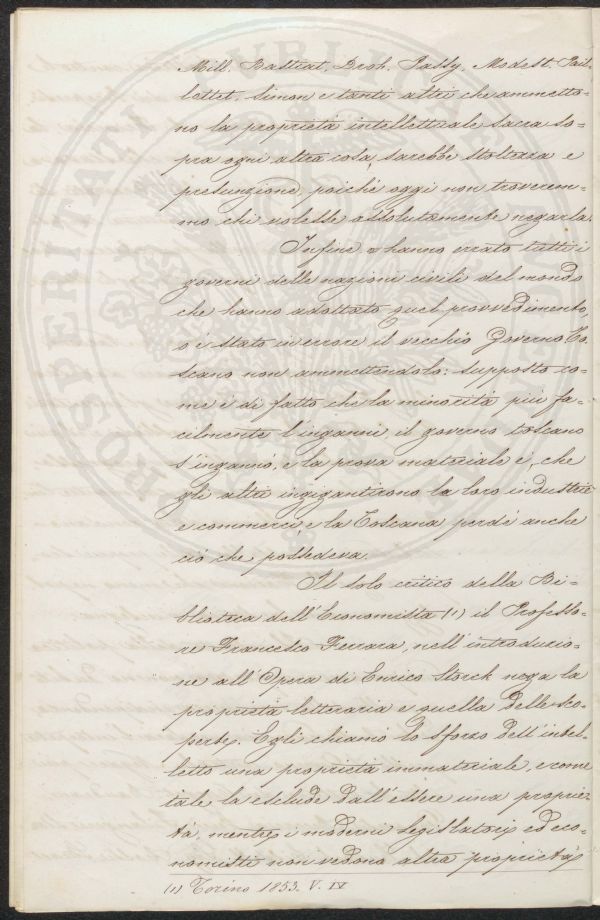 Mill. Bastiat. Droh. Passy. Modest. Pail=
lottet. Simon e tanti altri che ammetto=
no la proprietà intellettuale sacra so=
pra ogni altra cosa, sarebbe stoltezza e
presunzione, poiché oggi non troverem=
mo chi volesse assolutamente negarla.
Infine o hanno errato tutti i
governi delle nazioni civili del mondo
che hanno adottato quel provvedimento,
o è stato in errore il vecchio Governo To=
scano non ammettendolo: supposto co=
me è di fatto che la minorità più fa=
cilmente s'inganni, il governo toscano
s'ingannò, e la prova materiale è, che
gli altri ingigantirono la loro industria
e commerci, e la Toscana perdé anche
ciò che possedeva.
Il solo critico della Bi=
blioteca dell'Economista (1) il Professo=
re Francesco Ferrara, nell'introduzio=
ne all'Opera di Enrico Storck nega la
proprietà letteraria e quella delle sco=
perte. Egli chiamò lo sforzo dell'intel=
letto una proprietà immateriale, e come
tale la esclude dall'essere una proprie=
tà, mentre i moderni legislatori ed eco=
nomisti non vedono altra proprietà
(1) Torino 1853. V. IV
PROSPERITATI PUBLICAE AUGENDAE